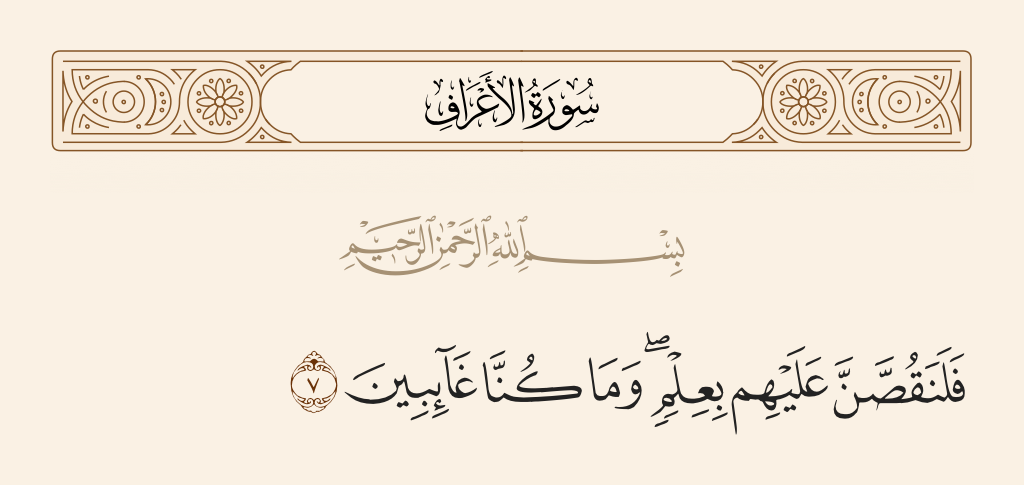 سُورَةُ الأَعْرَافِ
بِسْمِ ٱللَّهِ ٱلرَّحْمَٰنِ ٱلرَّحِيمِ
فَلَنَقُصَّنَّ عَلَيْهِم بِعِلْمٍ ۖ وَمَا كُنَّا غَآئِبِينَ ٧